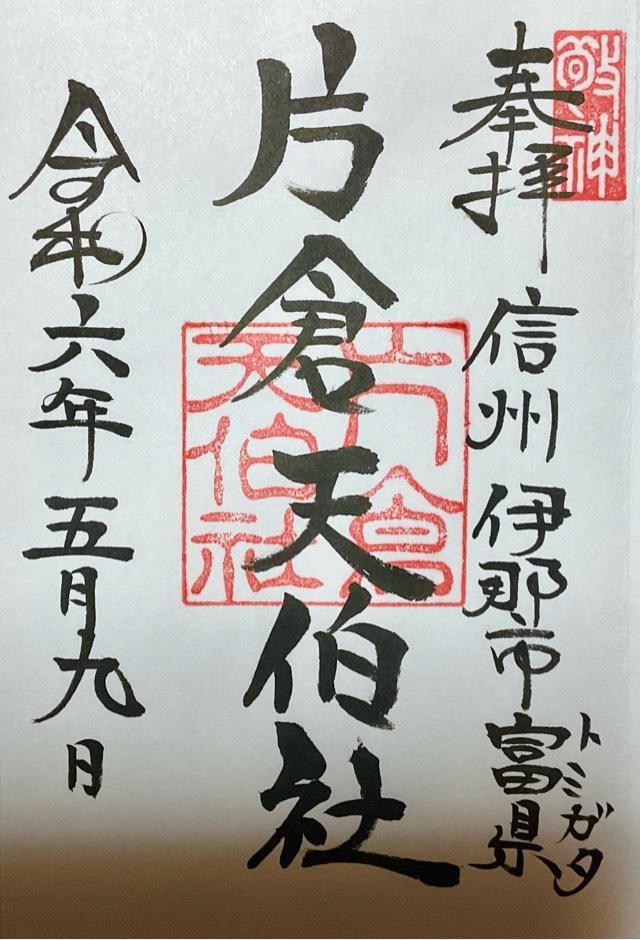 敬神
奉拝
信州伊那市富県
トミガタ
片倉天伯社
片倉
天伯社
令和六年五月九日